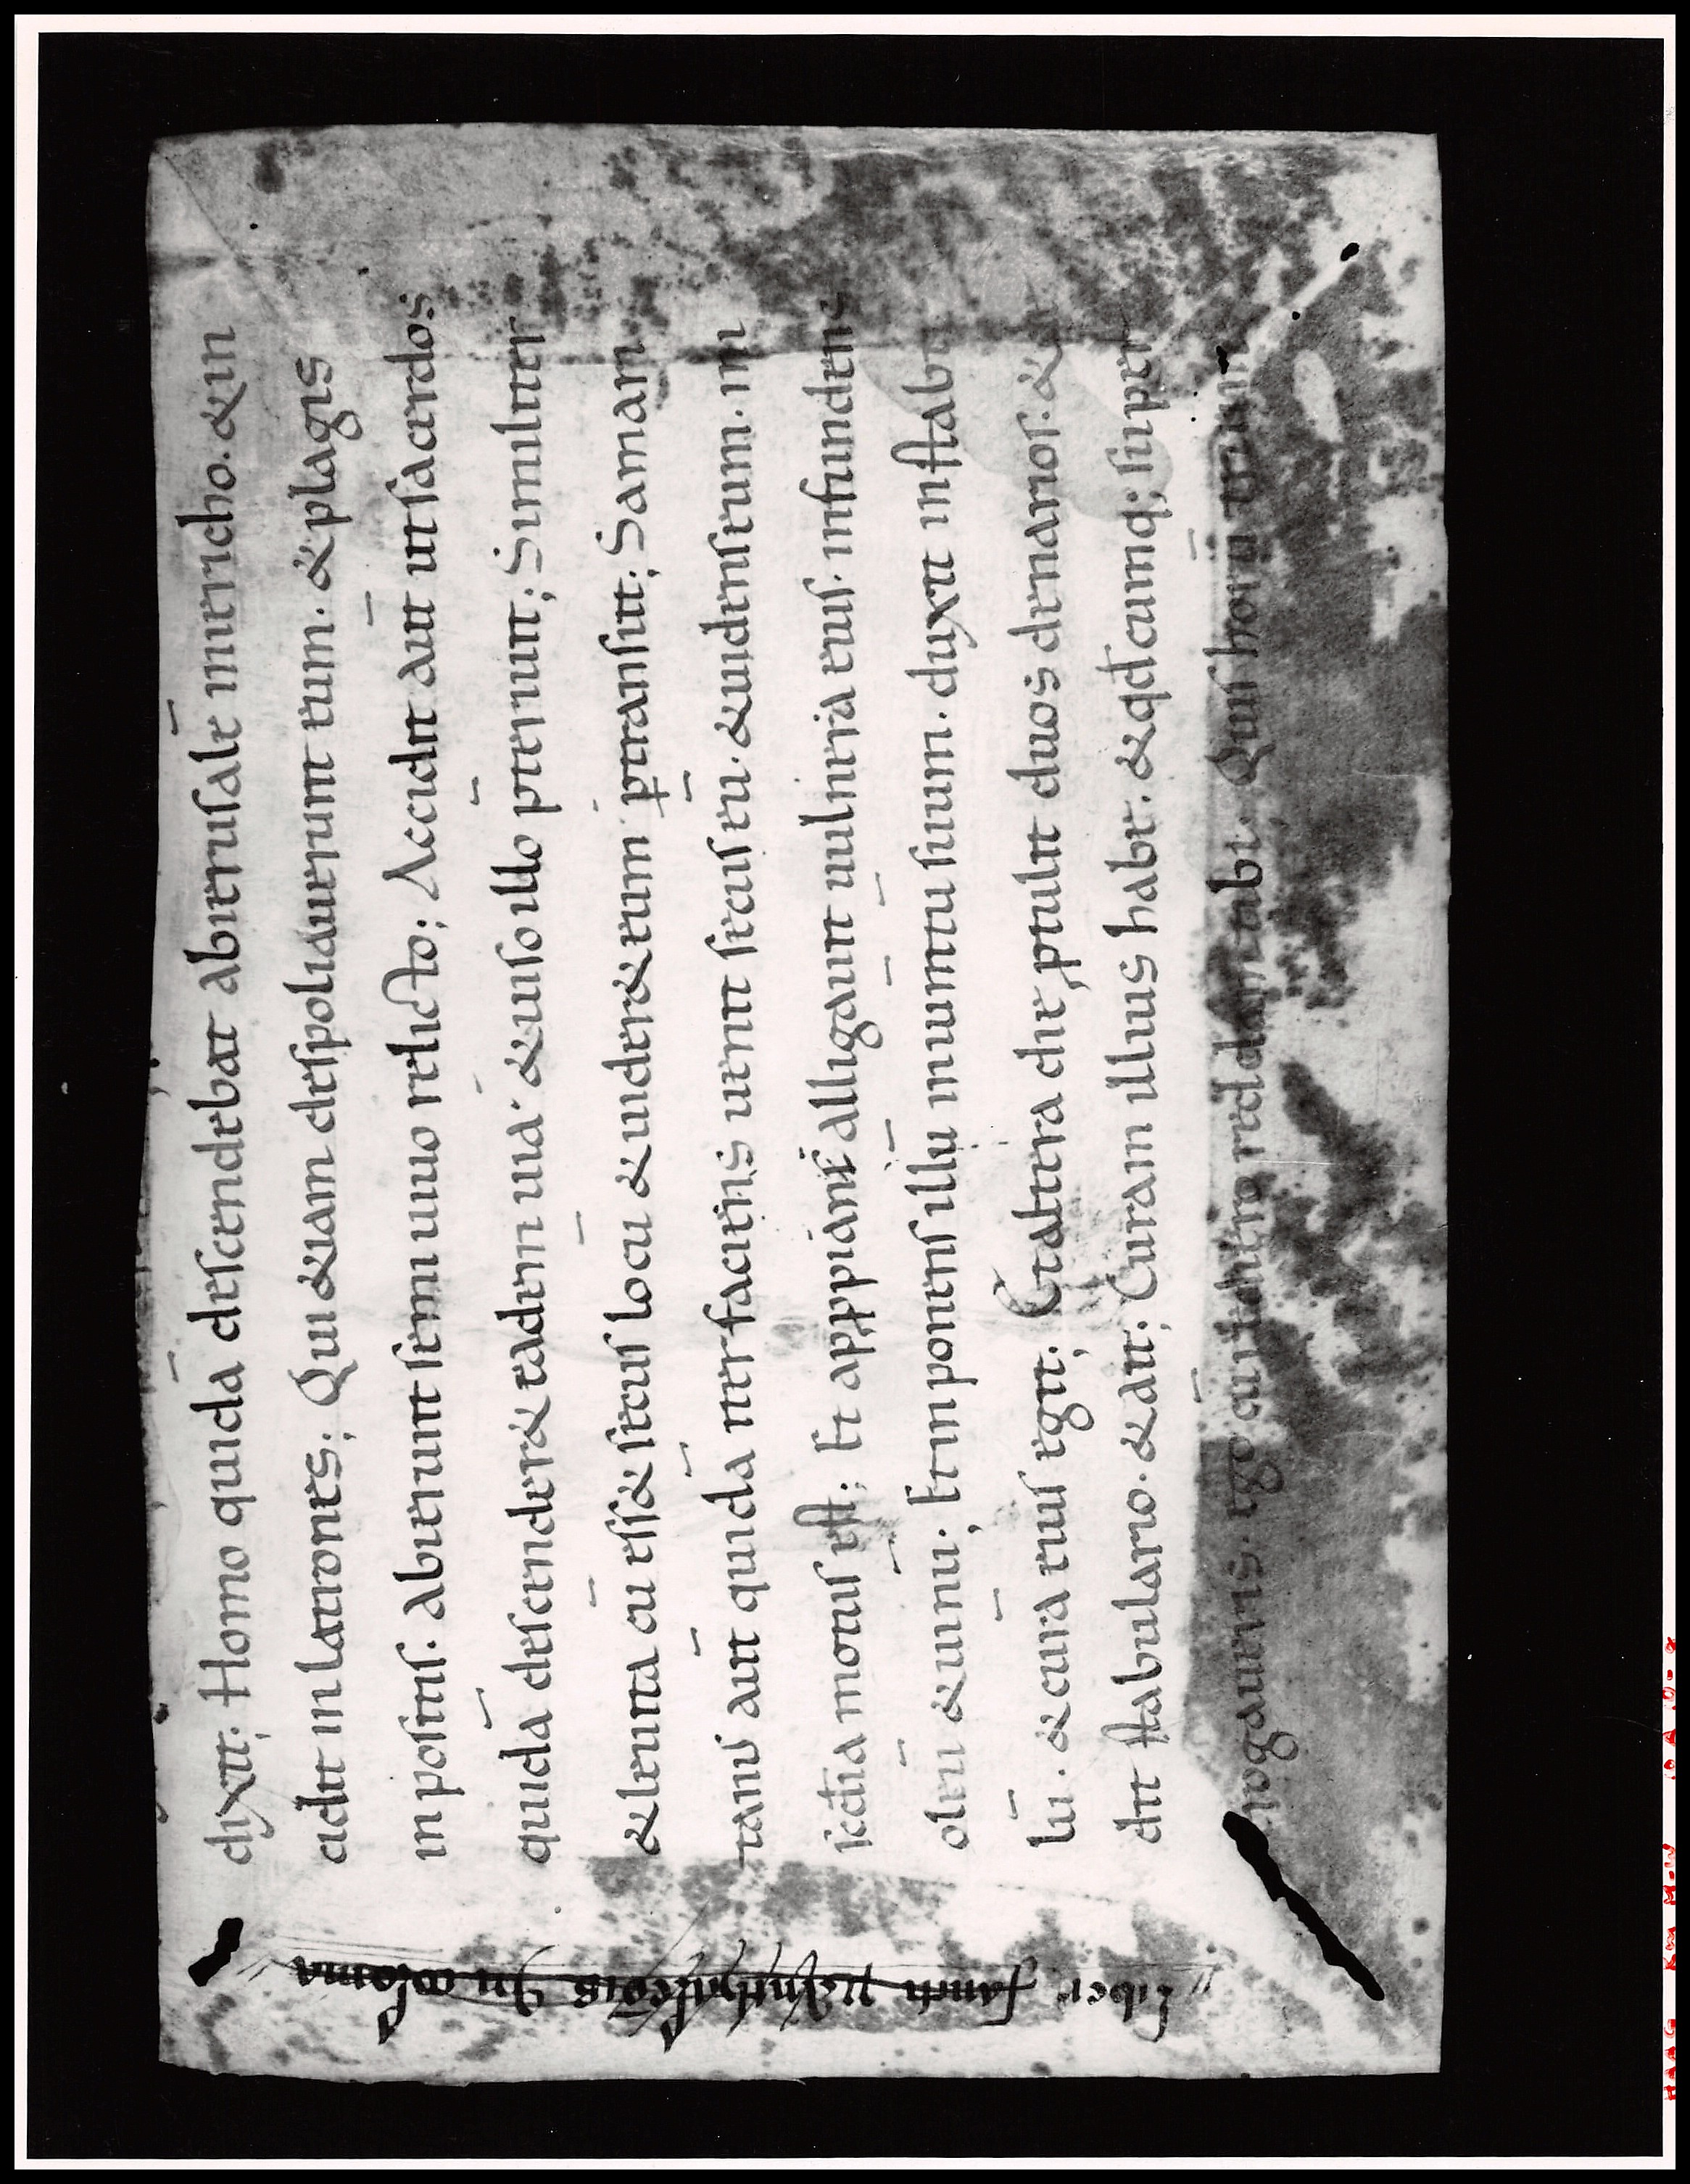 dixit; Homo quidā descendebat abierusalē iniericho. &in
cidit inlatrones; Qui &iam despoliauerunt eum. &plagis
inpositis. abierunt semiuiuo relicto; Accidit aūt utsacerdos
quidā descender& eadem uia &uisoillo preteriuit; Similiter
&leuita cū ess& secus locū &uider& eum ptransiit; Samari
tanus aūt quidā iterfaciens uenit secuseū. &uidenseum. mi
sericordia motus est; Et appians alligauit uulnera eius. infundens
oleū &uinū. Etinponens illū iniumentū suum. duxit instabu
lū. &curā eius egit; Etaltera die ptulit duos denarios. &
dedit stabulario. &ait; Curam illius habe. &qd̄cumq; super
rogaueris. ego cū rediero reddam tibi. Quis horū trium
Liber sancti in colonia